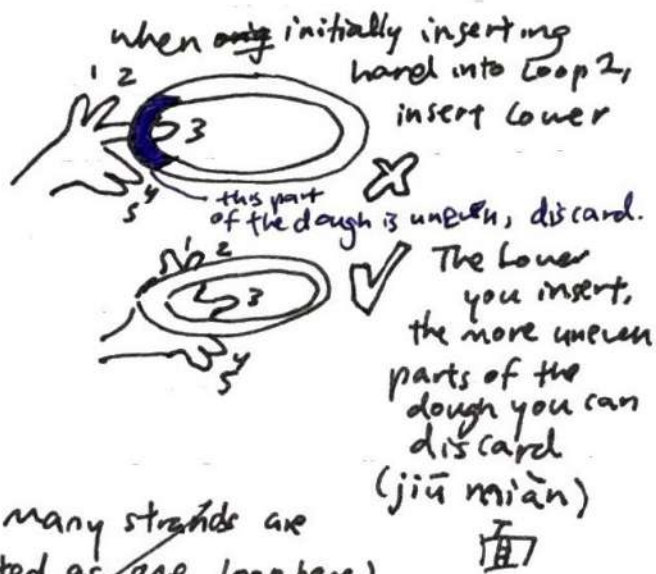 when initially inserting
hand into Loop 2,
insert lower
1 2
3
4
5
this part
of the dough is uneven, discard.
1 2
3
4
5
The lower
you insert,
the more uneven
parts of the
dough you can
discard
(jiū miàn)
面
many strands are
ted as one loop here)